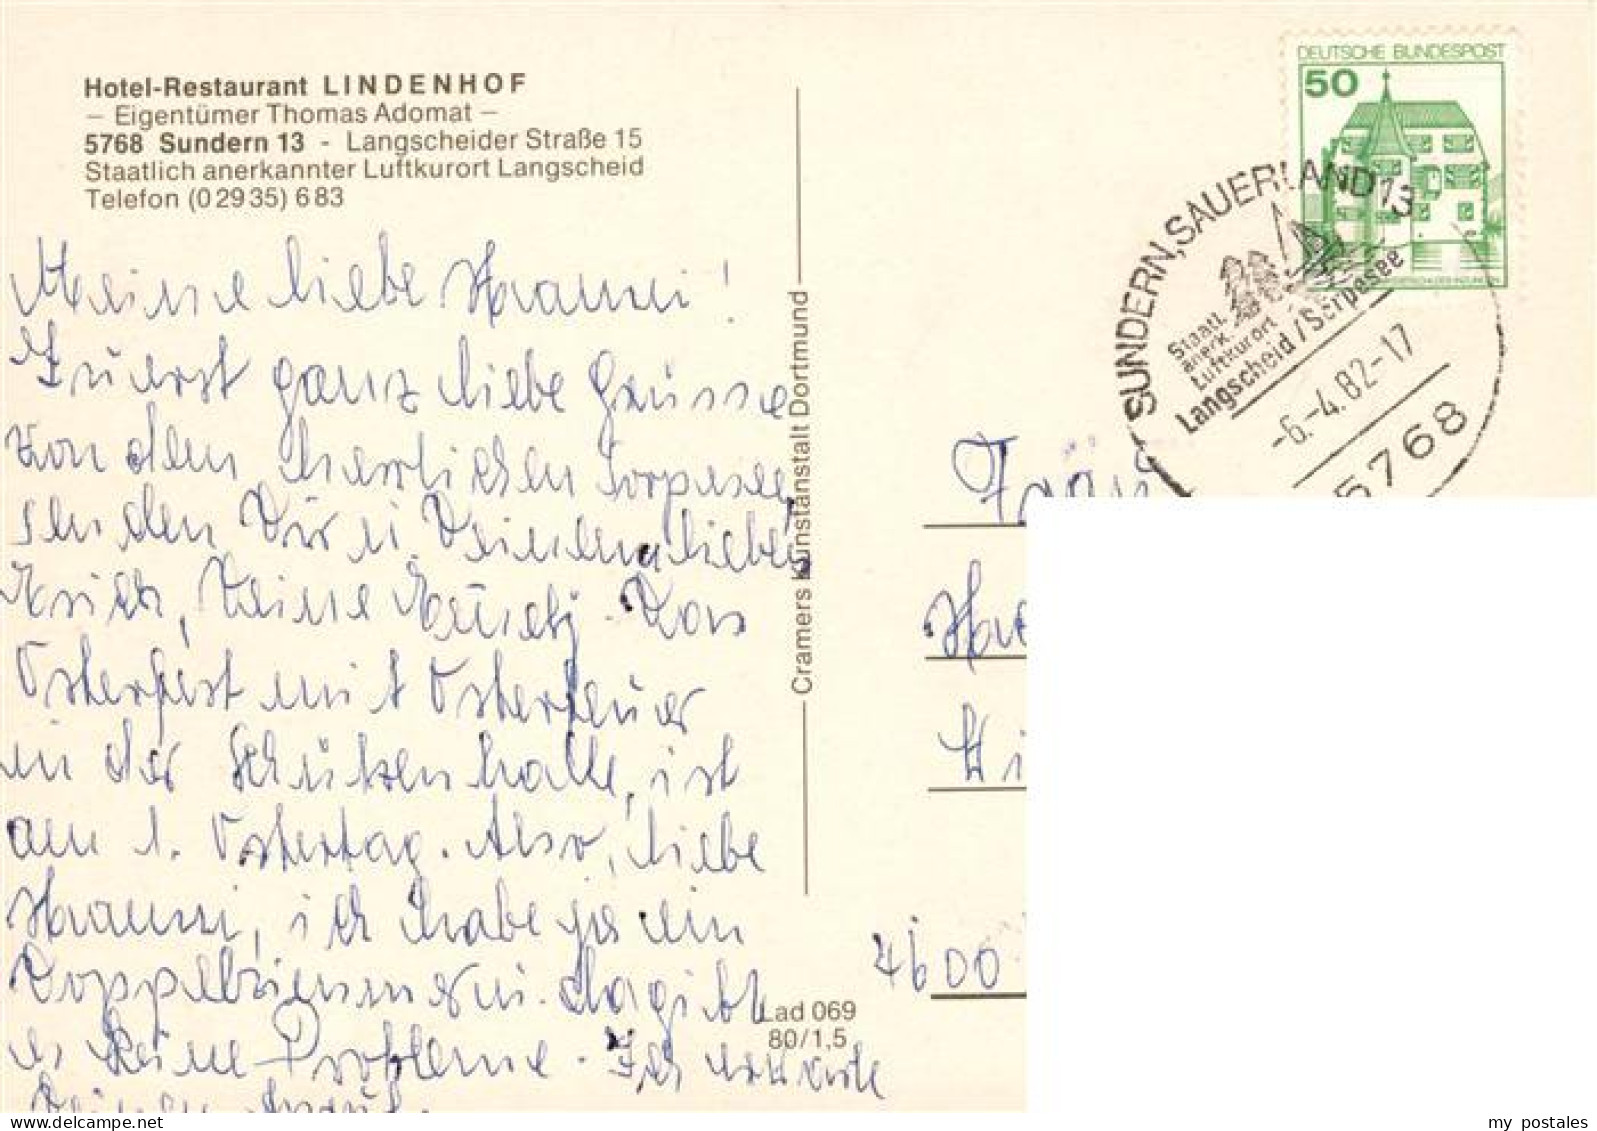 Hotel-Restaurant LINDENHOF
– Eigentümer Thomas Adomat –
5768 Sundern 13 - Langscheider Straße 15
Staatlich anerkannter Luftkurort Langscheid
Telefon (0 29 35) 6 83
Meine liebe Hanni!
Zuerst ganz liebe Grüsse
von dem herrlichen Sorpesee,
senden Dir u. Deinem lieben
Erich, Deine Das
Osterfest mit Osterfeuer
in der Schützenhalle, ist
am 1. Ostertag. Also, liebe
Hanni, ich habe ja ein
Doppelzimmer u. da gibt
es keine Probleme. Ich erwarte
Deinen Anruf.
Cramers Kunstanstalt Dortmund
Lad 069
80/1,5
DEUTSCHE BUNDESPOST
50
SUNDERN, SAUERLAND 13
Staatl.
anerk.
Luftkurort
Langscheid/Sorpesee
-6.-4.82-17
5768
4600
my postales